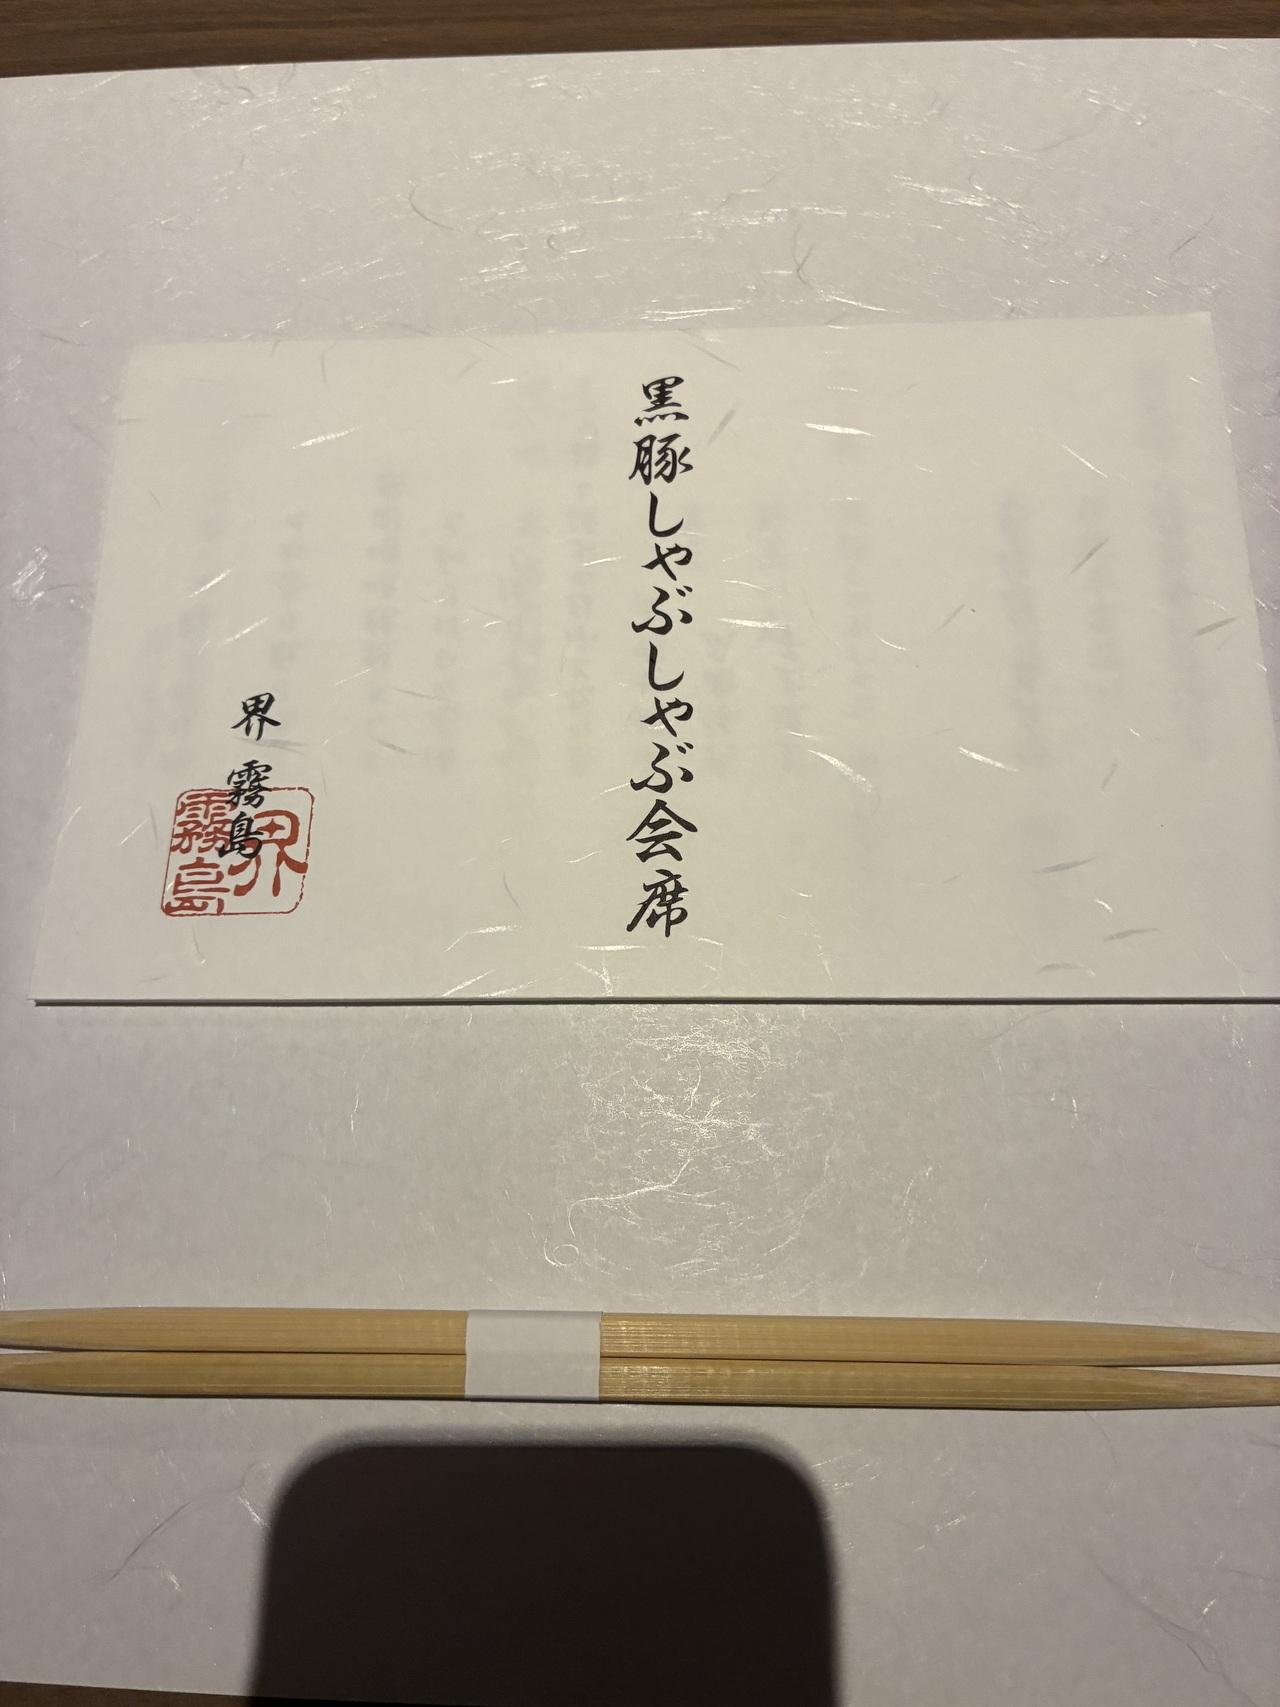 黒豚しゃぶしゃぶ会席
界 霧島
界
霧島